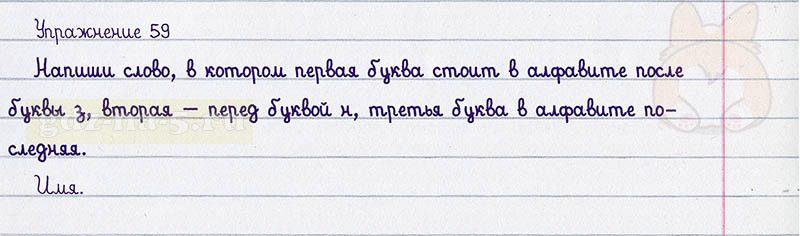 Упражнение 59
Напиши слово, в котором первая буква стоит в алфавите после
буквы з, вторая — перед буквой н, третья буква в алфавите по-
следняя.
Имя.